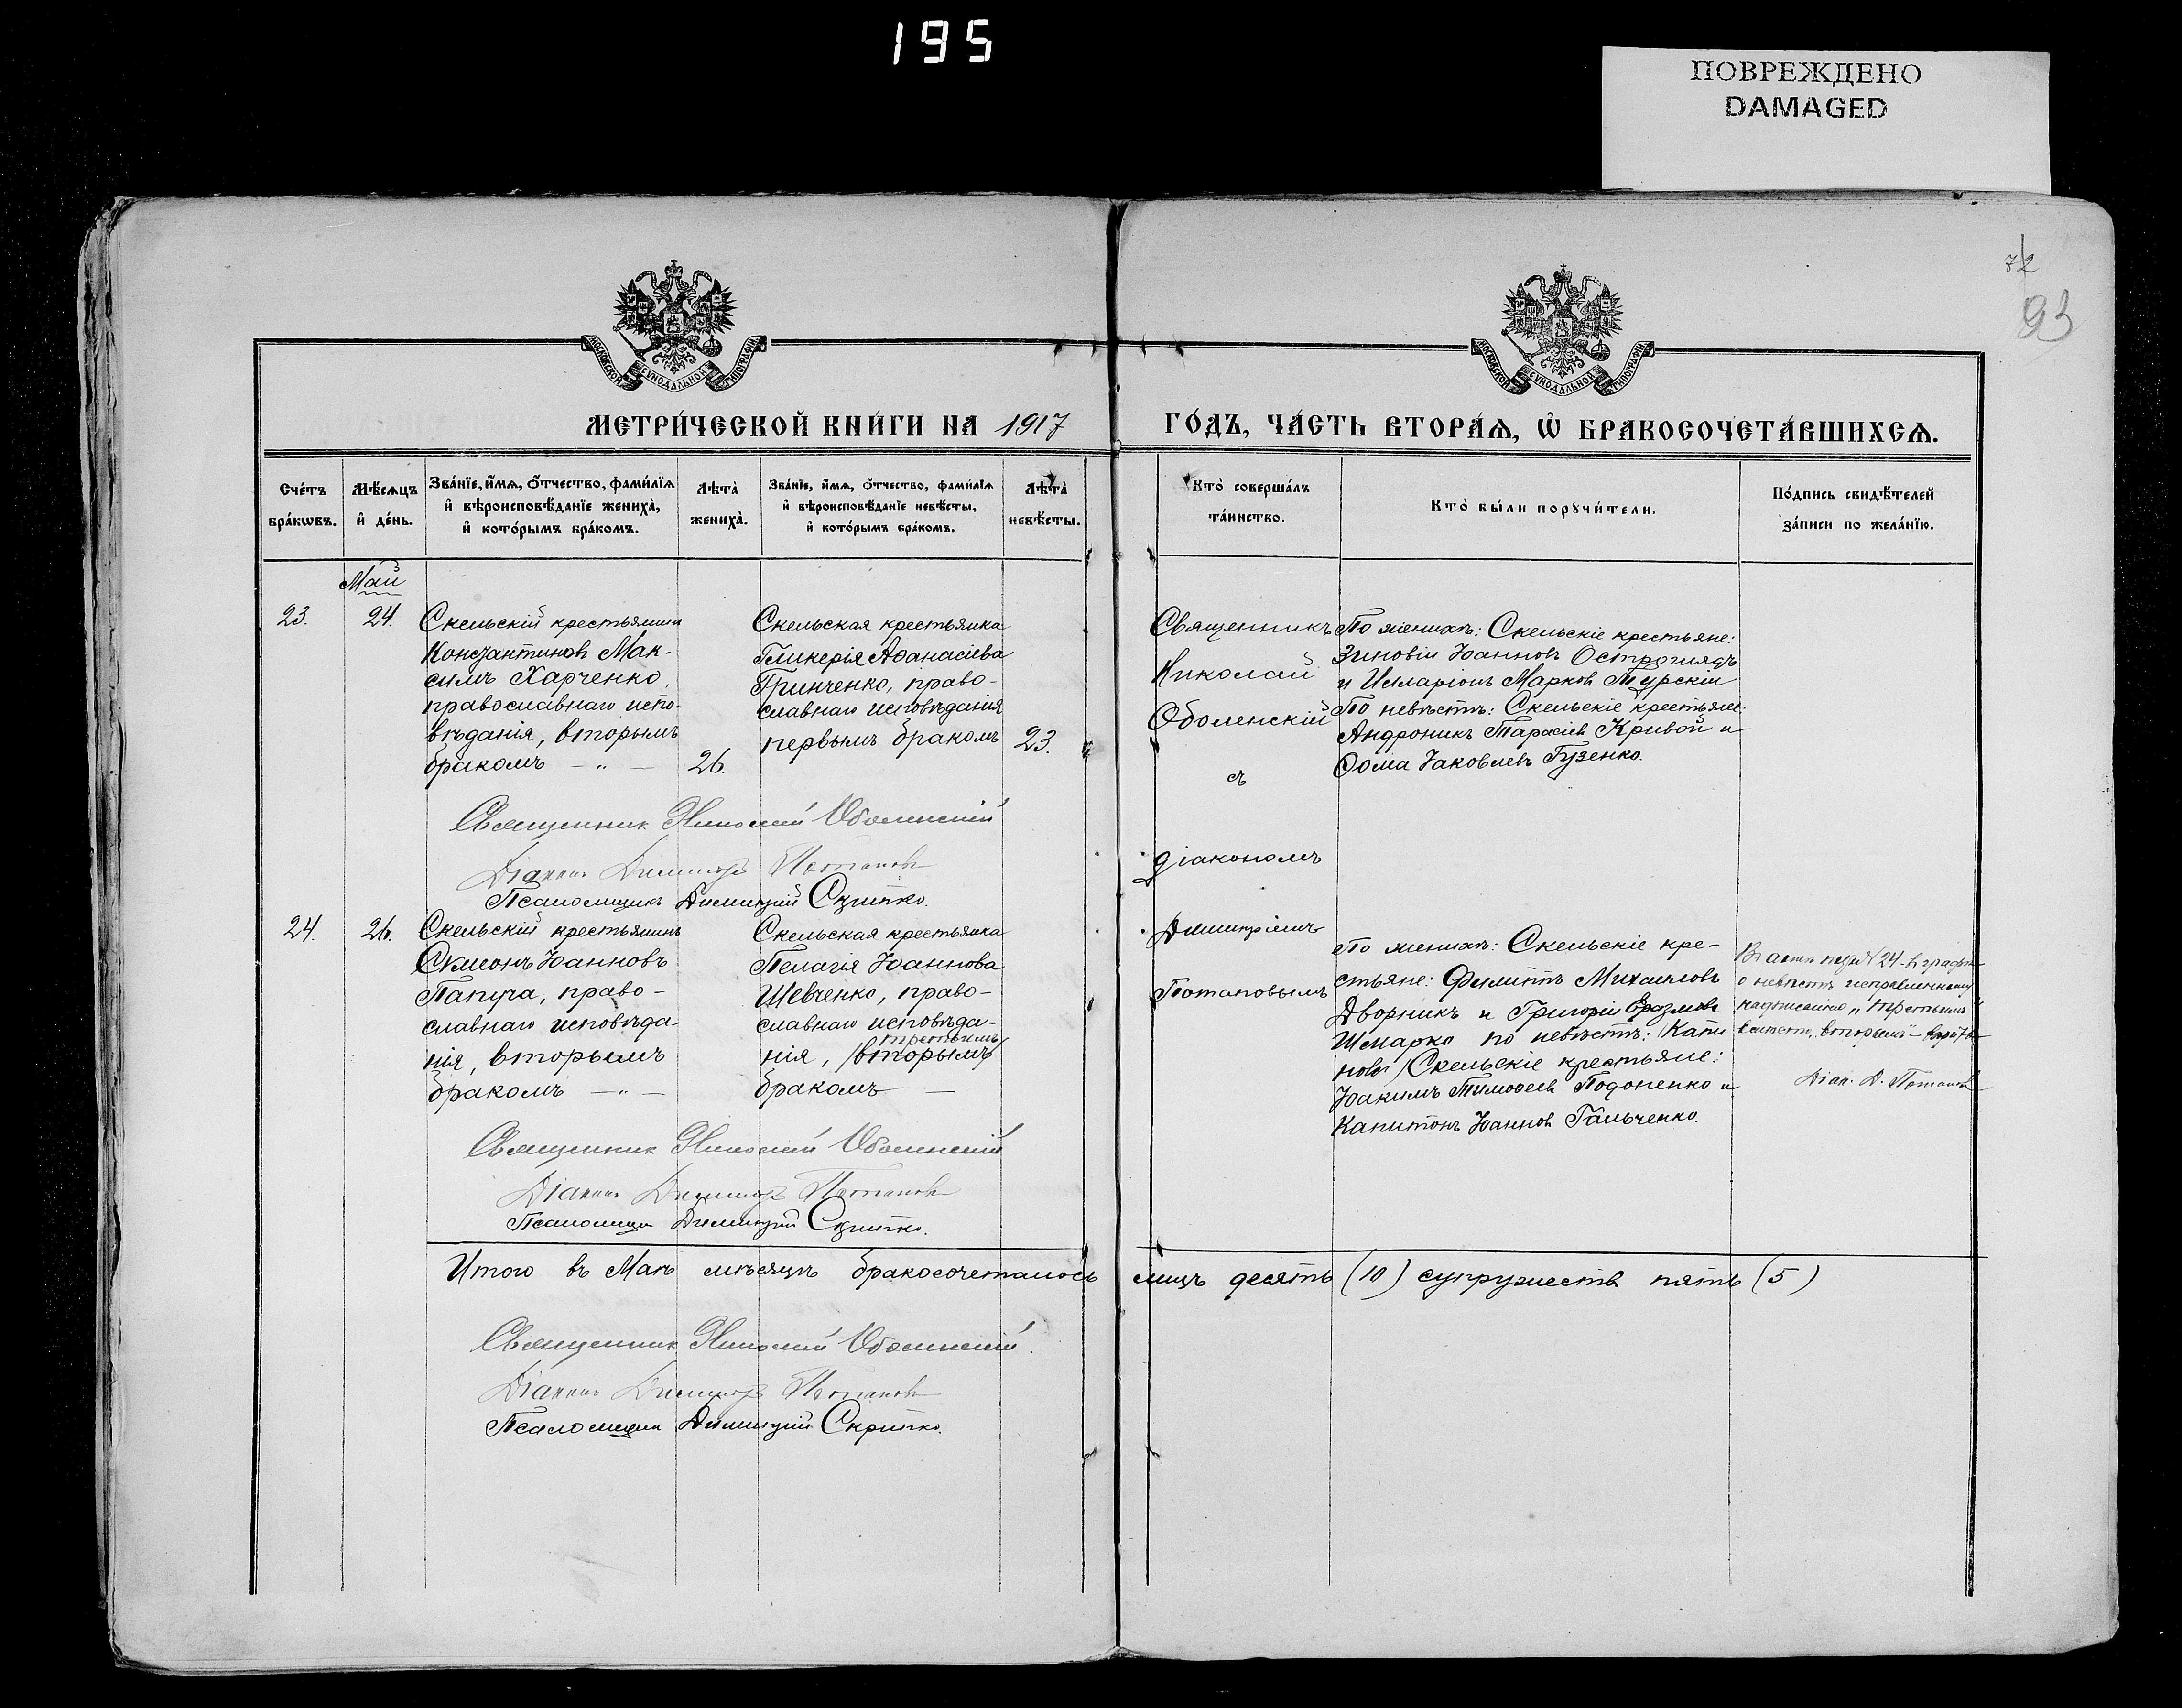 195
ПОВРЕЖДЕНО
DAMAGED
72
93
МОСКОВСКОЙ СѴНОДАЛЬНОЙ ТИПОГРАФІИ
МОСКОВСКОЙ СѴНОДАЛЬНОЙ ТИПОГРАФІИ
МЕТРИ́ЧЕСКОЙ КНИ́ГИ НА 1917 ГО́ДЪ, ЧА́СТЬ ВТОРА́Ѧ, Ѡ҆ БРАКОСОЧЕТА́ВШИХСѦ.
Сче́тъ
бра́кѡвъ.
Мѣ́сѧцъ
и҆ де́нь.
Зва́нїе, и҆́мѧ, ѻ҆́тчество, фами́лїѧ
и҆ вѣроисповѣ́данїе жениха̀,
и҆ кото́рымъ бра́комъ.
Лѣ́та̀
жениха̀.
Зва́нїе, и҆́мѧ, ѻ҆́тчество, фами́лїѧ
и҆ вѣроисповѣ́данїе невѣ́сты,
и҆ кото́рымъ бра́комъ.
Лѣ́та̀
невѣ́сты.
Кто̀ соверша́лъ
та́инство.
Кто̀ бы́ли порꙋчи́тели.
По́дпись свидѣ́телей
за́писи по жела́нїю.
Май
23.
24.
Скельскій крестьянин
Константинов Мак-
симъ Харченко,
православнаго испо-
вѣданія, вторымъ
бракомъ — „ —
26.
Скельская крестьянка
Гликерія Аѳанасіева
Гринченко, право-
славнаго исповѣданія
первымъ бракомъ
23.
Священникъ
Николай
Оболенскій
съ
діакономъ
Димитріемъ
Потаповымъ
По женихѣ: Скельскіе крестьяне:
Зиновій Іоанновъ Остроглядъ
и Илларіонъ Марков Мурскій
По невѣстѣ: Скельскіе крестьяне:
Андроникъ Тарасіев Кривой и
Ѳома Іаковлевъ Гузенко.
Священник Николай Оболенский
Діакон Димитрій Потапов
Псаломщикъ Димитрій Скрипко.
24.
26.
Скельскій крестьянинъ
Симеонъ Іоанновъ
Папуча, право-
славнаго исповѣда-
нія, вторымъ
бракомъ — „ —
Скельская крестьянка
Пелагія Іоаннова
Шевченко, право-
славнаго исповѣда-
третьимъ
нія, /вторымъ/
бракомъ —
По женихѣ: Скельскіе кре-
стьяне: Филиппъ Михаиловъ
Дворникъ и Григорій Еразмовъ
Шмарко по невѣстѣ: /Капи
нов/ Скельскіе крестьяне:
Іоакимъ Тимоѳеев Подоненко и
Капитонъ Іоаннов Гальченко.
Въ актѣ подъ № 24 въ графѣ
о невѣстѣ исправленному
надписанію „третьимъ
вмѣсто „вторымъ" — вѣрить
Діак. Д. Потапов
Священник Николай Оболенский
Діакон Димитрій Потапов
Псаломщик Димитрій Скрипко.
Итого въ Маѣ мѣсяцѣ бракосочеталось лицъ десять (10) супружествъ пять (5)
Священник Николай Оболенский.
Діакон Димитрій Потапов
Псаломщик Димитрій Скрипко.